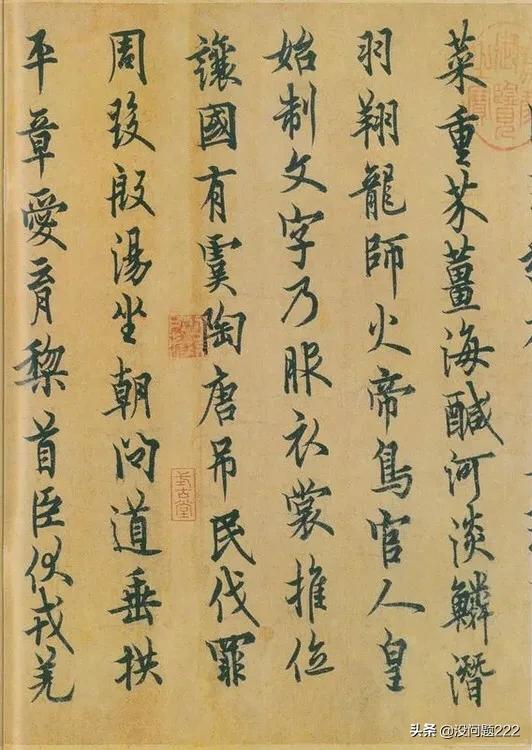 菜重芥薑海醎河淡鱗潛
羽翔龍師火帝鳥官人皇
始制文字乃服衣裳推位
讓國有虞陶唐吊民伐罪
周發殷湯坐朝問道垂拱
平章愛育黎首臣伏戎羌
头条 @没问题222